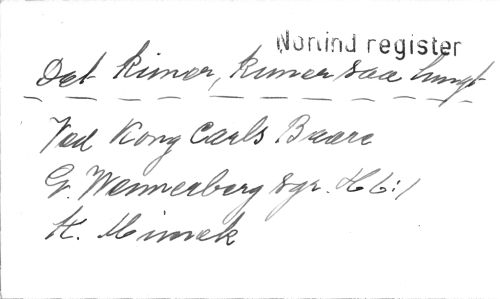 Norlind register
Det kimer, kimer saa tungt
Ved Kong Carls Baare
G. Wennerberg sgr. H 6:1
K.